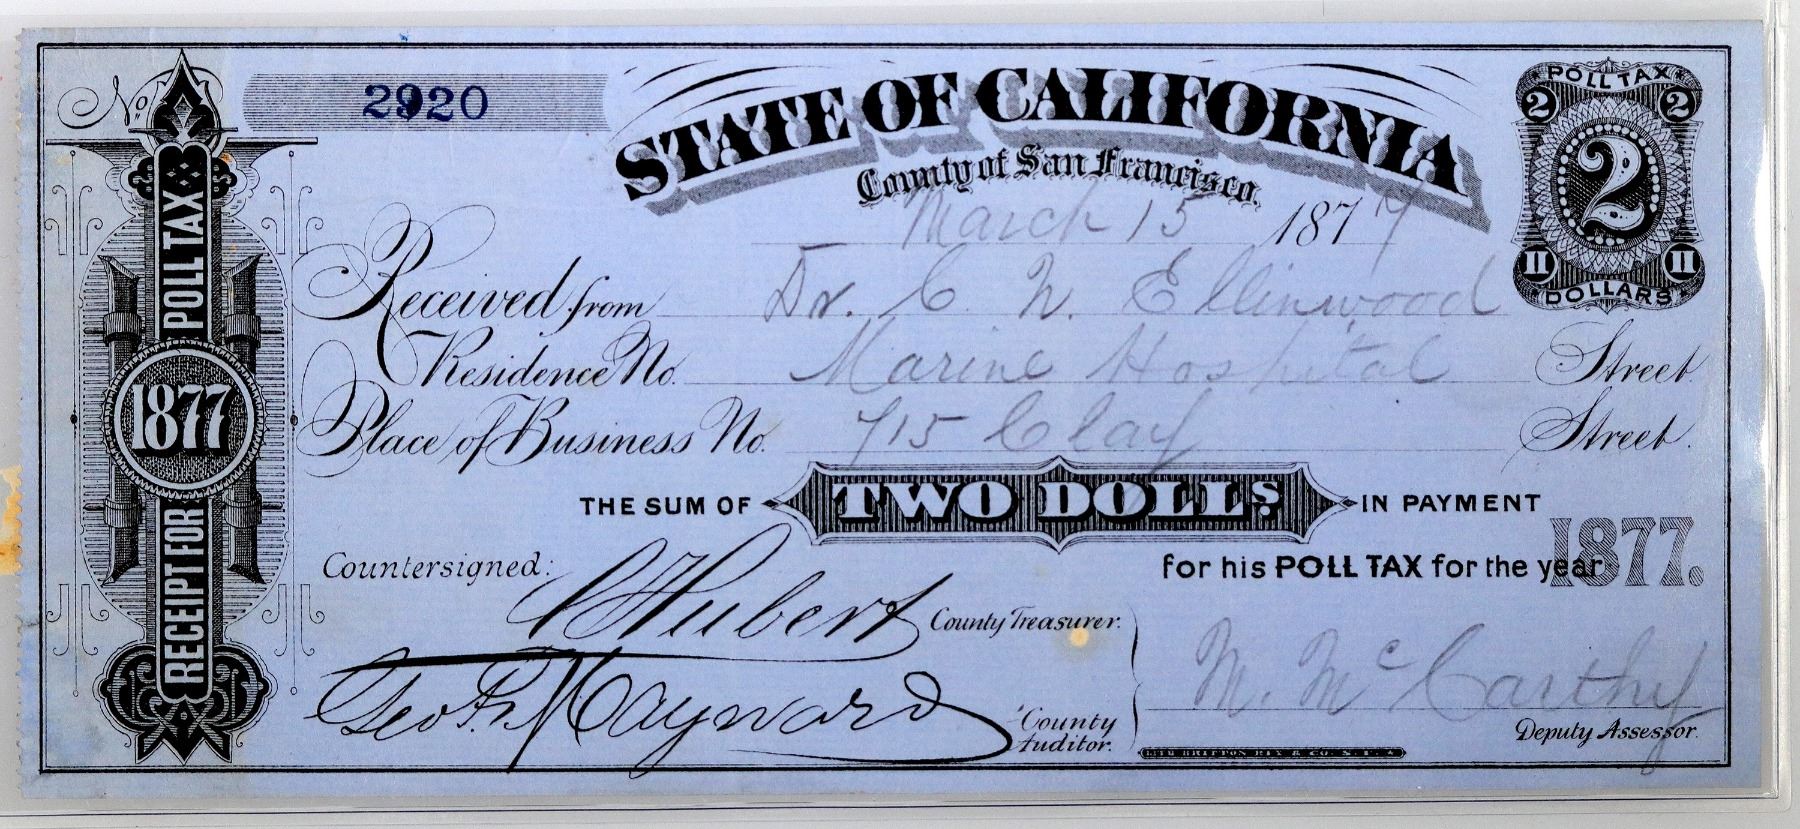 No. 2920
STATE OF CALIFORNIA
County of San Francisco.
March 15 1877
POLL TAX
2 2
2
II II
DOLLARS
Received from Dr. C. N. Ellinwood
Residence No. Marine Hospital Street
Place of Business No. 715 Clay Street.
THE SUM OF TWO DOLLS IN PAYMENT
for his POLL TAX for the year 1877.
Countersigned:
C Hubert County Treasurer.
Geo. F. Maynard County Auditor.
M. McCarthy
Deputy Assessor.
LITH. BRITTON REY & CO. S. F.
RECEIPT FOR 1877 POLL TAX $2